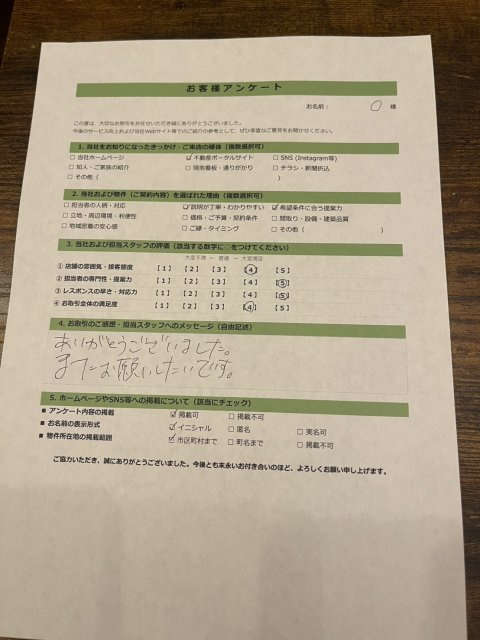 お客様アンケート
お名前： O 様
この度は、大切なお取引をお任せいただき誠にありがとうございました。
今後のサービス向上および当社Webサイト等でのご紹介の参考として、ぜひ率直なご意見をお聞かせください。
1. 当社をお知りになったきっかけ・ご来店の媒体（複数選択可）
☐ 当社ホームページ ☑ 不動産ポータルサイト ☐ SNS (Instagram等)
☐ 知人・ご家族の紹介 ☐ 現地看板・通りがかり ☐ チラシ・新聞折込
☐ その他（ ）
2. 当社および物件（ご契約内容）を選ばれた理由（複数選択可）
☐ 担当者の人柄・対応 ☑ 説明が丁寧・わかりやすい ☑ 希望条件に合う提案力
☐ 立地・周辺環境・利便性 ☐ 価格・ご予算・契約条件 ☐ 間取り・設備・建築品質
☐ 地域密着の安心感 ☐ ご縁・タイミング ☐ その他（ ）
3. 当社および担当スタッフの評価（該当する数字に○をつけてください）
大変不満 ← 普通 → 大変満足
① 店舗の雰囲気・接客態度 【1】 【2】 【3】 【4】 【5】
② 担当者の専門性・提案力 【1】 【2】 【3】 【4】 【5】
③ レスポンスの早さ・対応力 【1】 【2】 【3】 【4】 【5】
④ お取引全体の満足度 【1】 【2】 【3】 【4】 【5】
4. お取引のご感想・担当スタッフへのメッセージ（自由記述）
ありがとうございました。
またお願いしたいです。
5. ホームページやSNS等への掲載について（該当にチェック）
■ アンケート内容の掲載 ☑ 掲載可 ☐ 掲載不可
■ お名前の表示形式 ☑ イニシャル ☐ 匿名 ☐ 実名可
■ 物件所在地の掲載範囲 ☑ 市区町村まで ☐ 町名まで ☐ 掲載不可
ご協力いただき、誠にありがとうございました。今後とも末永いお付き合いのほど、よろしくお願い申し上げます。